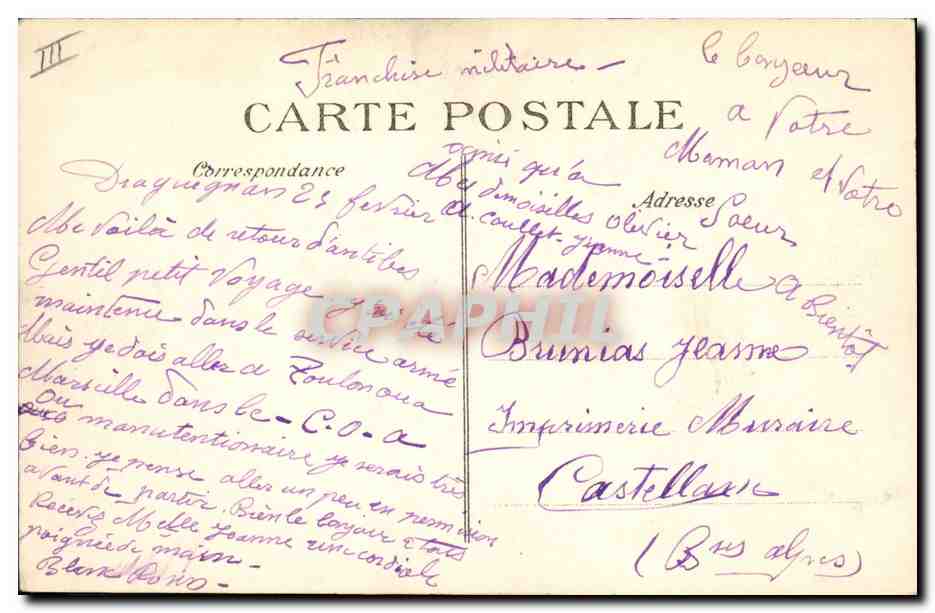 III
Franchise militaire -
CARTE POSTALE
Correspondance
Draguignan 23 fevrier
Me voilà de retour d'antibes
Gentil petit voyage
maintenu dans le service armé
Mais je dois aller a Toulon ou a
Marseille dans le - C.O.A
ou manutentionaire je serais très
bien. je pense aller un peu en permission
avant de partir. Bien le bonjour a tous
Recevez Melle Jeanne une cordiale
poignée de main -
Blanc
le bonjour
a Votre
Maman et Votre
Soeur
ainsi qu'a
Mes demoiselles Olivier
et Coullet - yvonne
a Bientôt
Adresse
Mademoiselle
Brunias Jeanne
Imprimerie Muraire
Castellane
(Bses alpes)
CPAPHIL